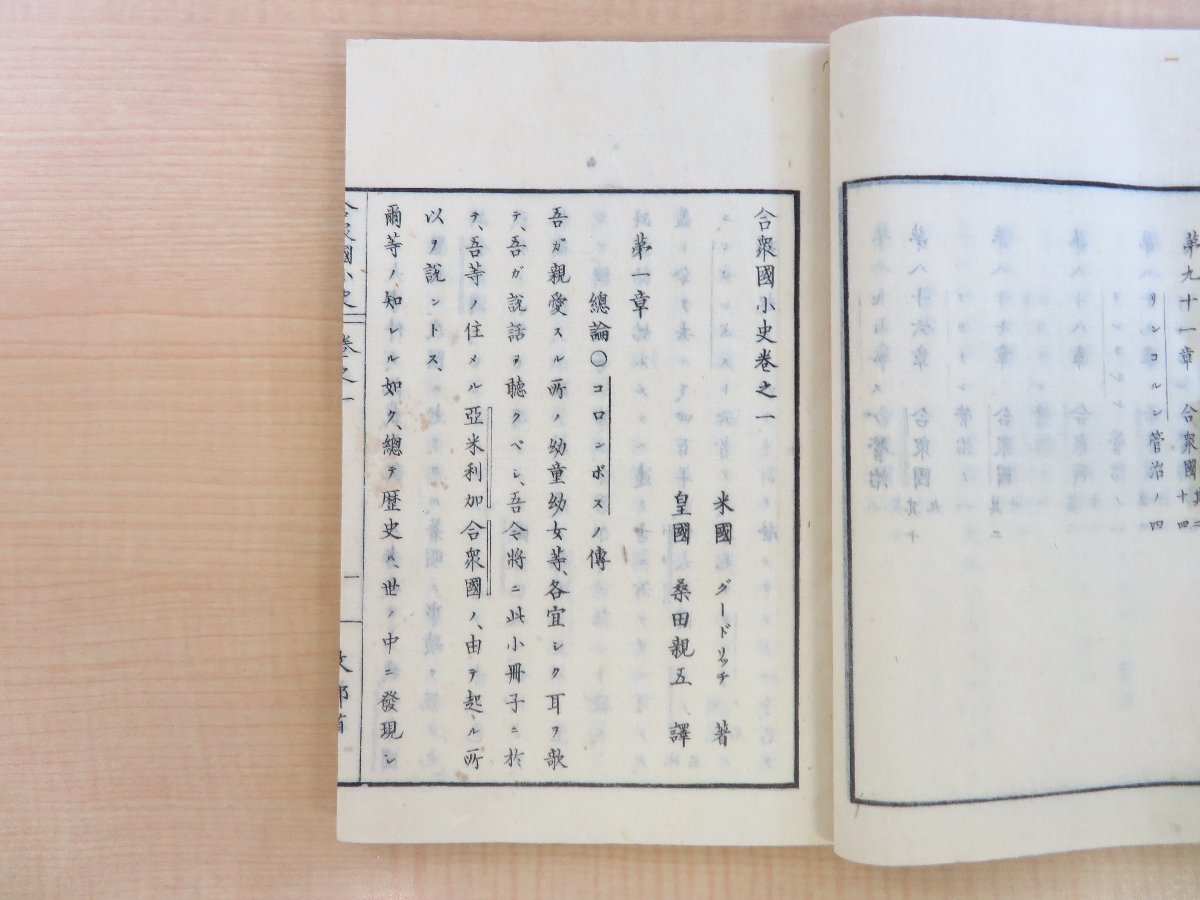 第九十一章 合衆國其十四
リンコルン管治ノ四
第八十六章 合衆國其十
合衆國小史卷之一
米國 グードリッチ 著
皇國 桑田親五 譯
第一章
總論〇コロンボスノ傳
吾ガ親愛スル所ノ幼童幼女等、各宜シク耳ヲ欹
テ、吾ガ説話ヲ聽クベシ、吾今將ニ此小冊子ニ於
テ、吾等ノ住メル亞米利加合衆國ノ、由テ起ル所
以ヲ説ントス、
爾等ノ、知レル如ク、總テ歴史ハ、世ノ中ニ發現シ
合衆國小史 卷之一 一 文部省